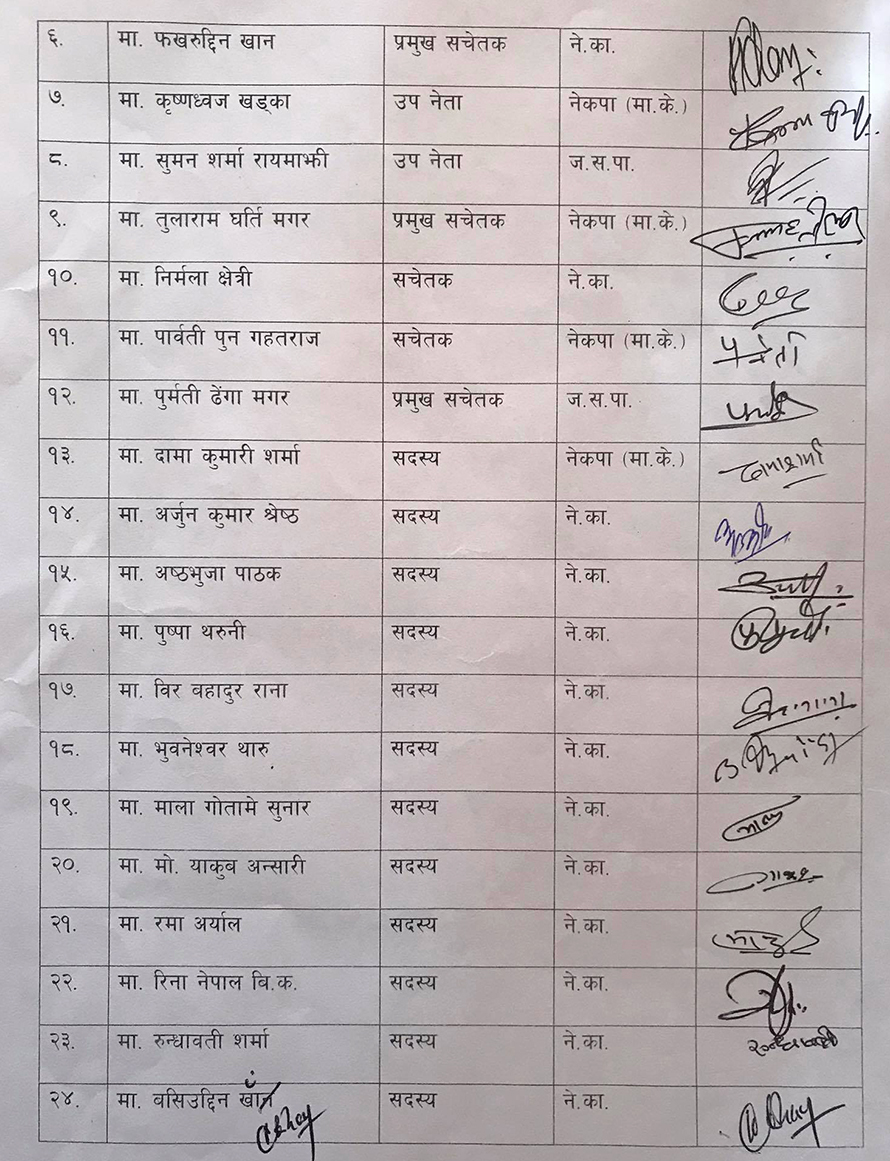 ६. मा. फखरुद्दिन खान प्रमुख सचेतक ने.का.
७. मा. कृष्णध्वज खड्का उप नेता नेकपा (मा.के.)
८. मा. सुमन शर्मा रायमाझी उप नेता ज.स.पा.
९. मा. तुलाराम घर्ति मगर प्रमुख सचेतक नेकपा (मा.के.)
१०. मा. निर्मला क्षेत्री सचेतक ने.का.
११. मा. पार्वती पुन गहतराज सचेतक नेकपा (मा.के.)
१२. मा. पुर्मती ढेंगा मगर प्रमुख सचेतक ज.स.पा.
१३. मा. दामा कुमारी शर्मा सदस्य नेकपा (मा.के.)
१४. मा. अर्जुन कुमार श्रेष्ठ सदस्य ने.का.
१५. मा. अष्ठभुजा पाठक सदस्य ने.का.
१६. मा. पुष्पा थरुनी सदस्य ने.का.
१७. मा. विर बहादुर राना सदस्य ने.का.
१८. मा. भुवनेश्वर थारु सदस्य ने.का.
१९. मा. माला गोतामे सुनार सदस्य ने.का.
२०. मा. मो. याकुव अन्सारी सदस्य ने.का.
२१. मा. रमा अर्याल सदस्य ने.का.
२२. मा. रिना नेपाल बि.क. सदस्य ने.का.
२३. मा. रुन्धावती शर्मा सदस्य ने.का.
२४. मा. बसिउद्दिन खाँन सदस्य ने.का.